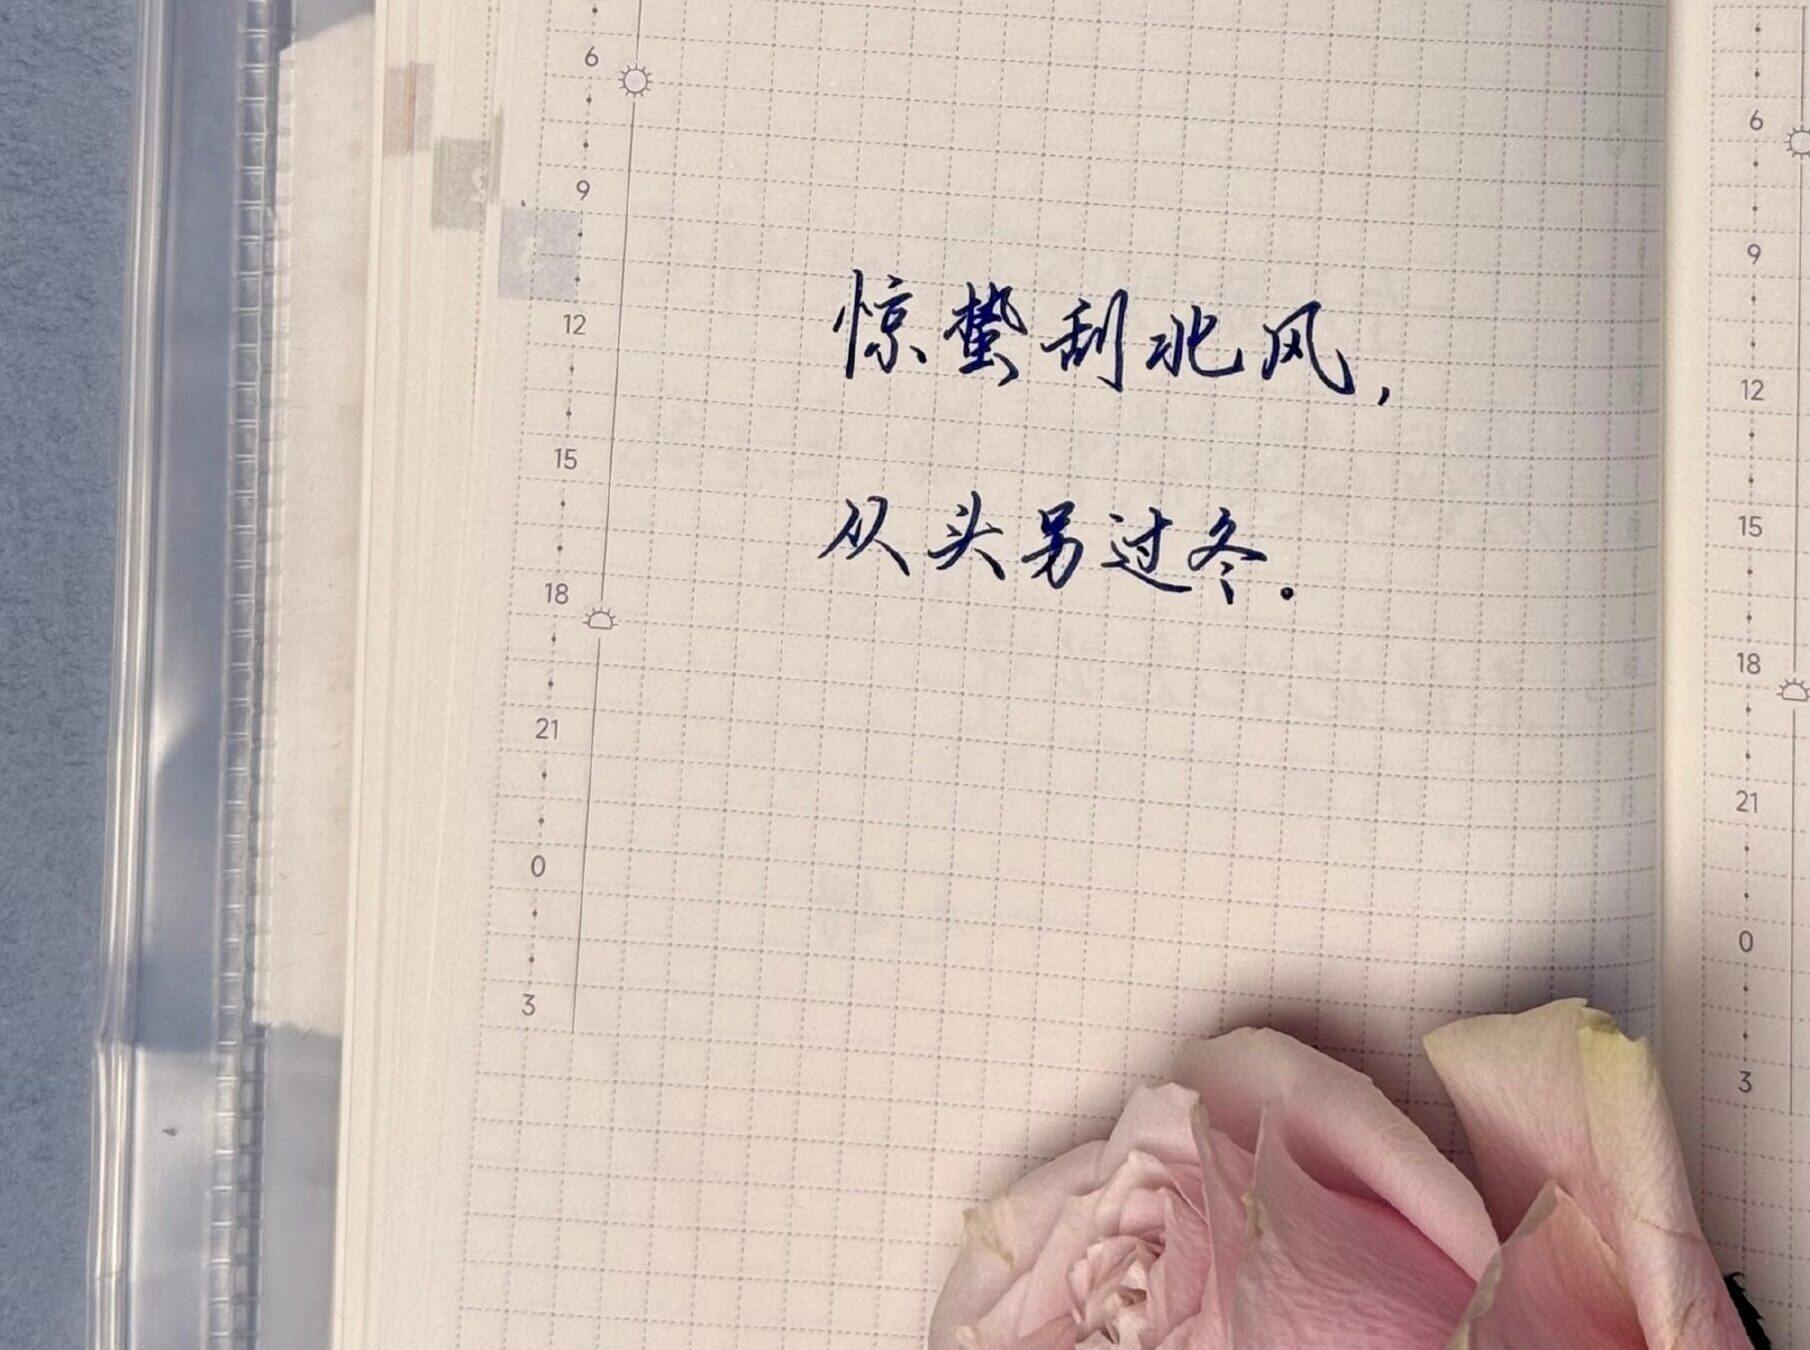 6
9
12
15
18
21
0
3
惊蛰刮北风，
从头另过冬。
6
9
12
15
18
21
0
3